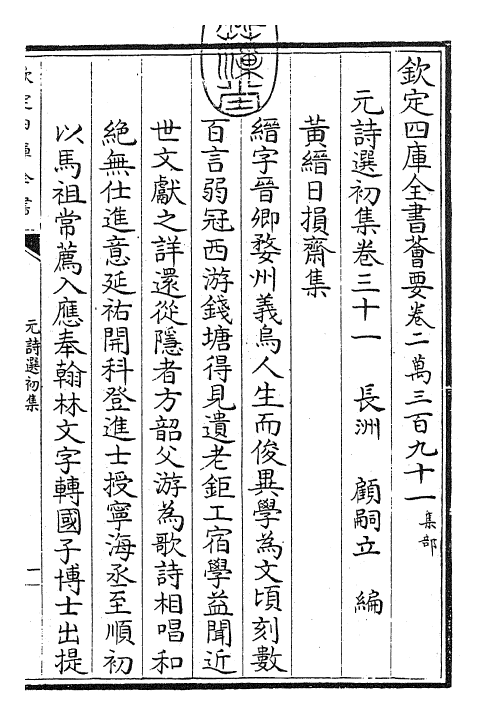 欽定四庫全書薈要卷二萬三百九十一集部
元詩選初集卷三十一　長洲　顧嗣立　編
黃縉日損齋集
縉字晉卿婺州義烏人生而俊異學為文頃刻數
百言弱冠西游錢塘得見遺老鉅工宿學益聞近
世文獻之詳還從隱者方韶父游為歌詩相唱和
絕無仕進意延祐開科登進士授寧海丞至順初
以馬祖常薦入應奉翰林文字轉國子博士出提
元詩選初集
一